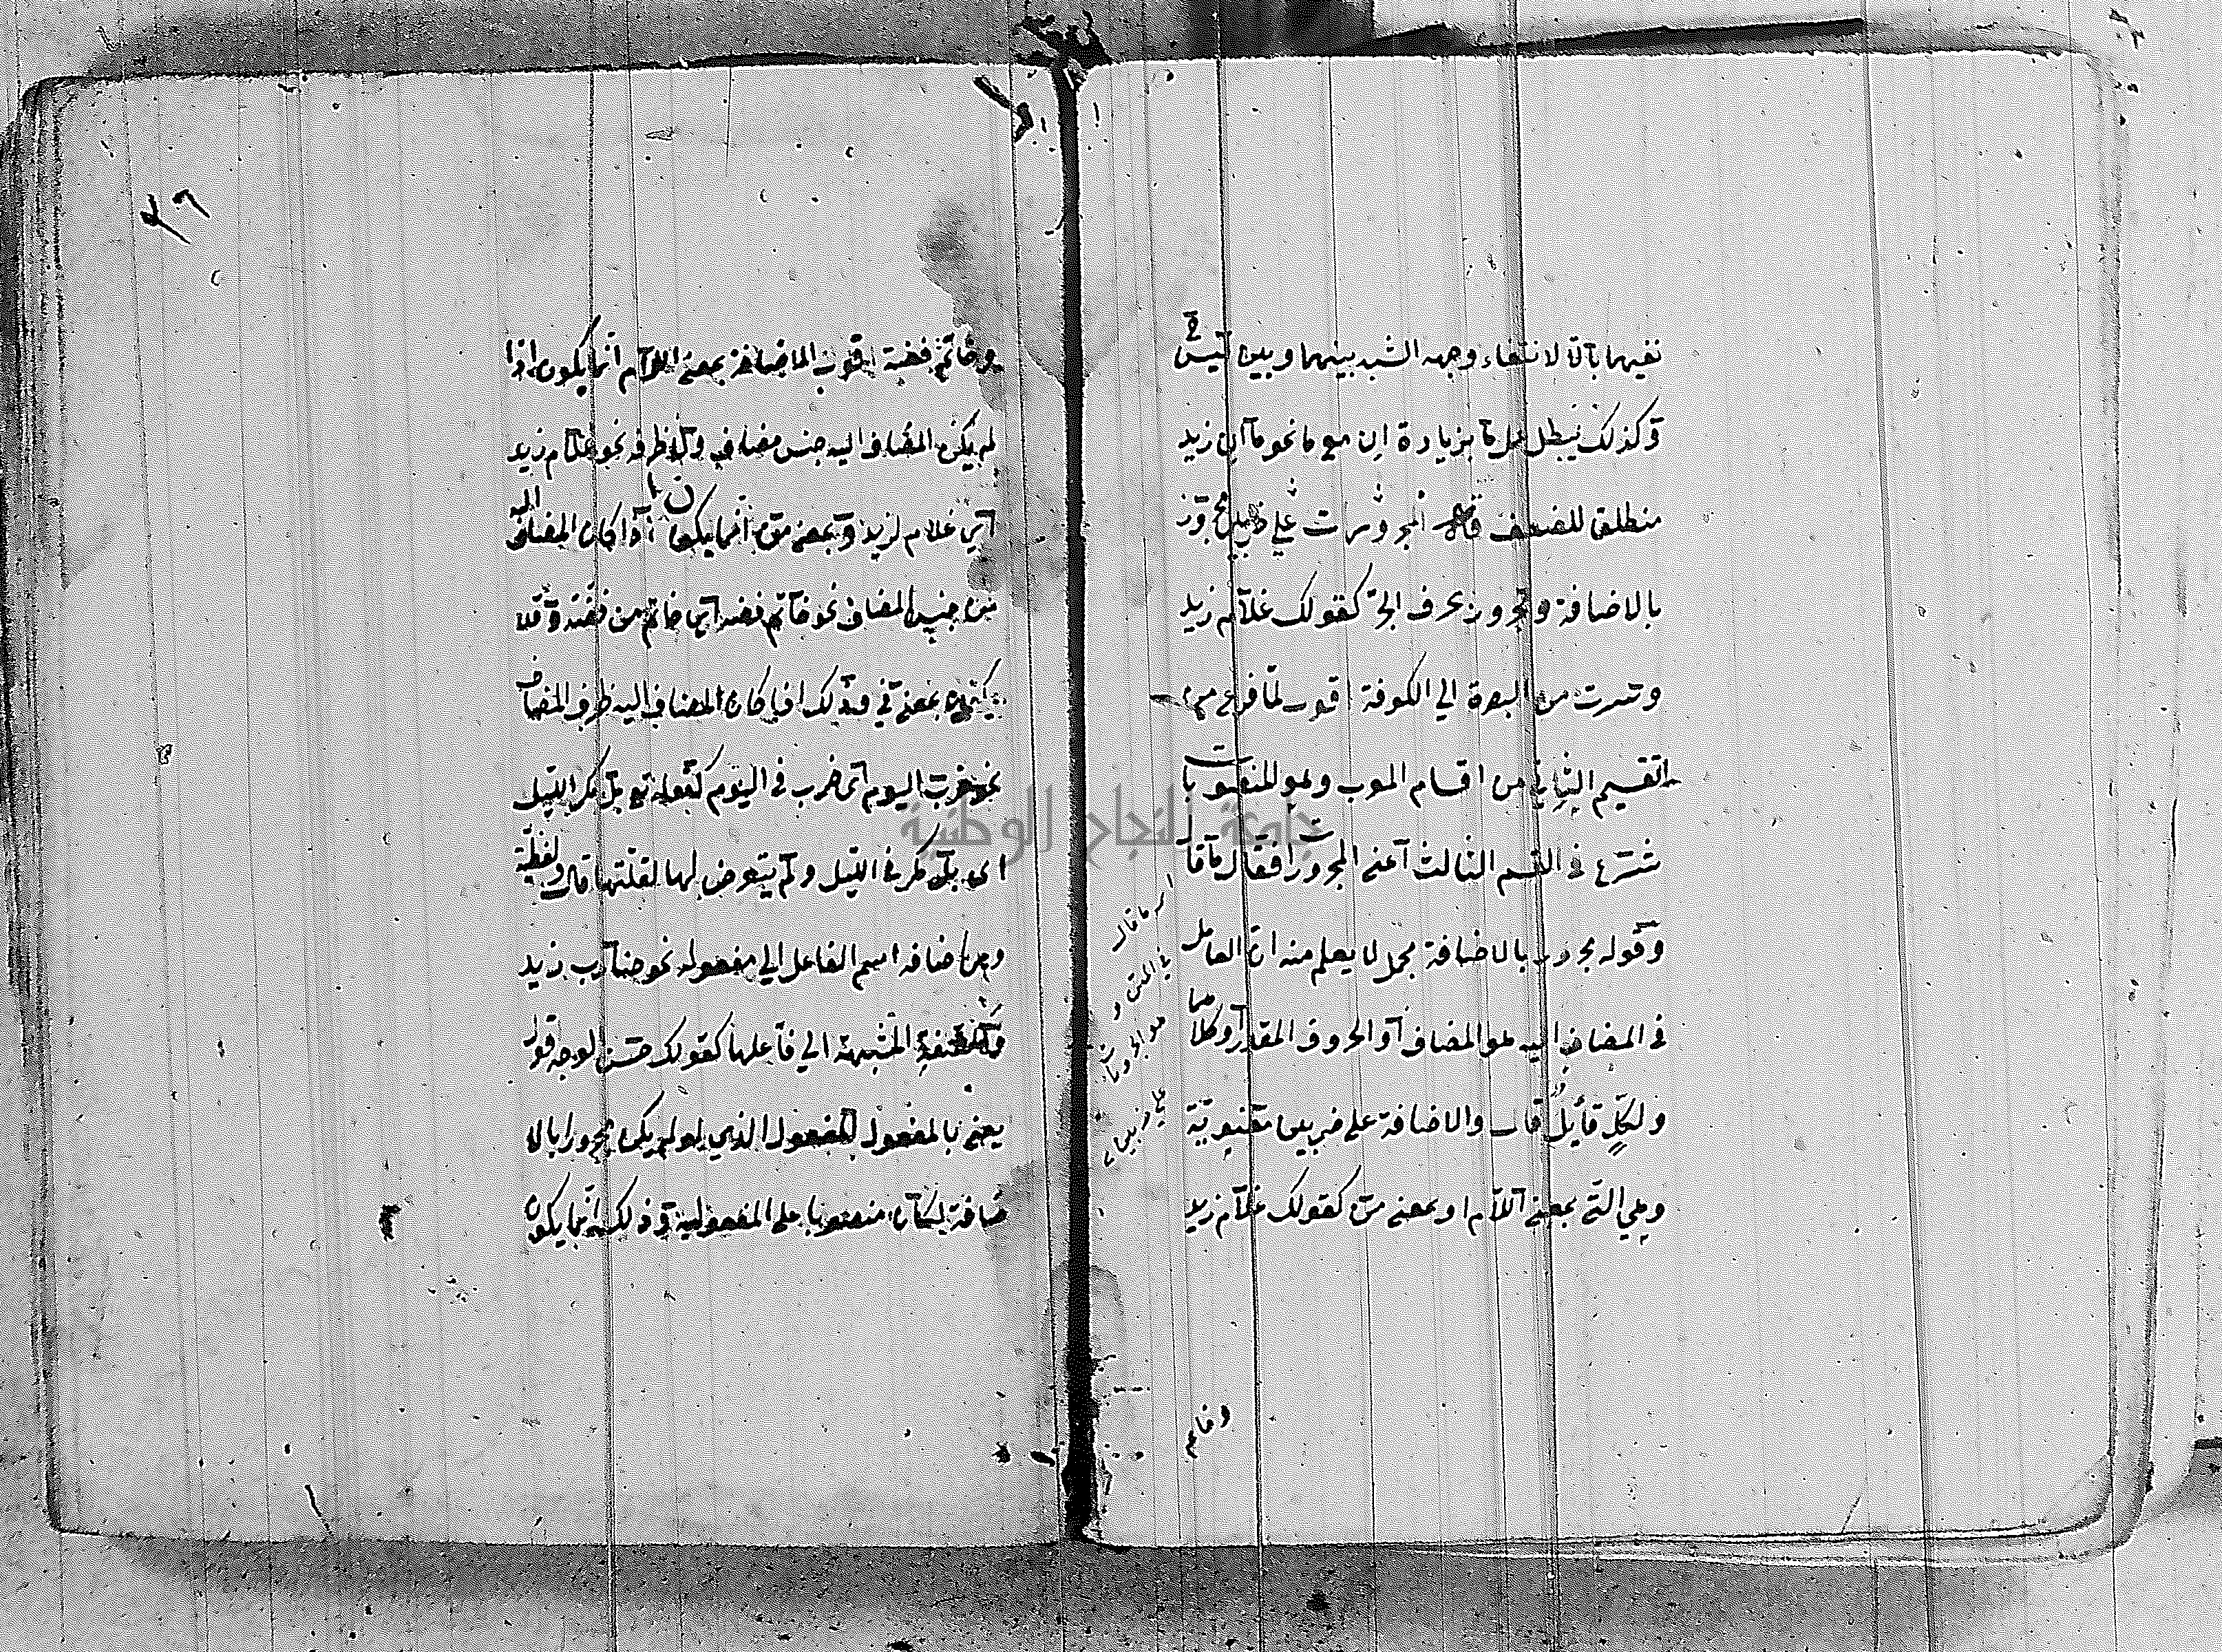 نفيها بالا لانتفاء وجه الشبه بينهما وبين ليس
وكذلك يبطل عمل ما بزيادة ان مع ما نحو ما ان زيد
منطلق للضعف قال المجرورات على ضربين مجرور
بالاضافة ومجرور بحرف الجر كقولك غلام زيد
وسرت من البصرة الي الكوفة اقول لما فرغ من
القسم الثاني من اقسام المعرب وهو المنصوبات
شرع في القسم الثالث اعني المجرورات فقال ما قال
وقوله مجرور بالاضافة مجمل لا يعلم منه ان العامل
في المضاف اليه هو المضاف او الحروف المقدر او كلاهما
ولكل قايل قال والاضافة على ضربين معنوية
وهي التي بمعنى اللام او بمعنى من كقولك غلام زيد
اى ما قال
في المتن و
هو المجرورات
على ضربين
وخاتم
٧٦
وخاتم فضة اقول الاضافة بمعنى اللام انما يكون اذا
لم يكن المضاف اليه جنس مضاف ولا ظرفه نحو غلام زيد
اي غلام لزيد وبمعنى من انما يكون اذا كان المضاف اليه
من جنس المضاف نحو خاتم فضة اي خاتم من فضة وقد
يكون بمعنى في وذلك اذا كان المضاف اليه ظرف المضاف
نحو ضرب اليوم اى ضرب في اليوم كقوله تع بل مكر الليل
اى بل مكر في الليل ولم يتعرض لها لقلتها قال ولفظية
وهي اضافة اسم الفاعل الي مفعوله نحو ضارب زيد
والصفة المشبهة الي فاعلها كقولك حسن الوجه اقول
يعني بالمفعول المفعول الذي لو لم يكن مجرورا بالا
ضافة لكان منصوبا على المفعولية وذلك انما يكون